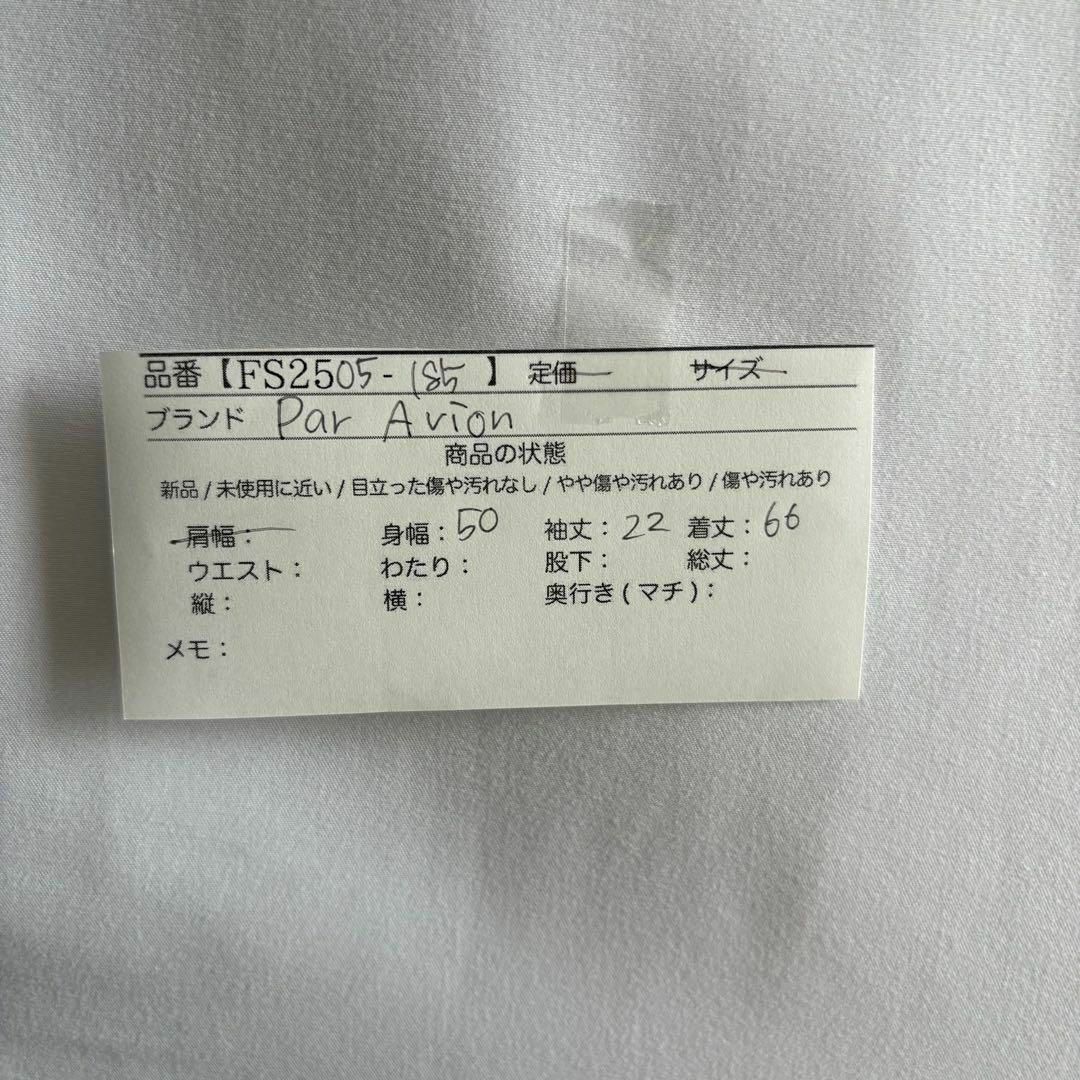 品番【FS2505-185】 定価 サイズ
ブランド Par Avion
商品の状態
新品 / 未使用に近い / 目立った傷や汚れなし / やや傷や汚れあり / 傷や汚れあり
肩幅： 身幅：50 袖丈：22 着丈：66
ウエスト： わたり： 股下： 総丈：
縦： 横： 奥行き(マチ)：
メモ：